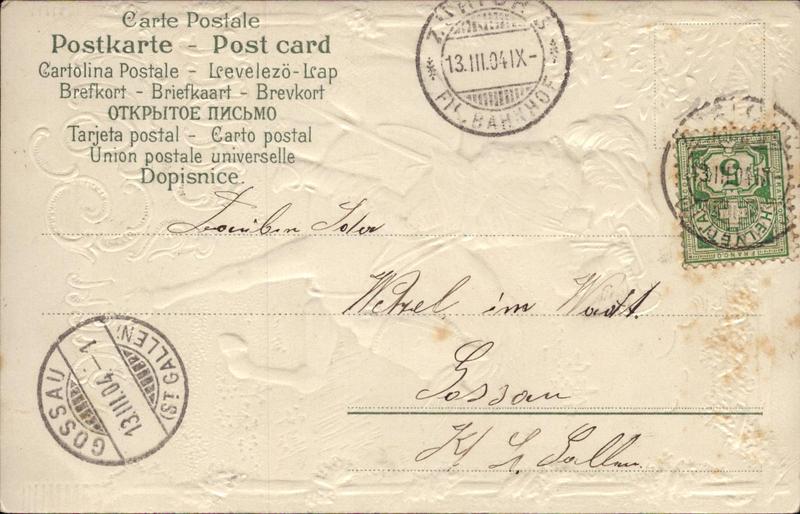 Carte Postale
Postkarte - Post card
Cartolina Postale - Levelezö-Lap
Brefkort - Briefkaart - Brevkort
ОТКРЫТОЕ ПИСЬМО
Tarjeta postal - Carto postal
Union postale universelle
Dopisnice.
13.III.04 IX-
FIL. BAHNHOF
5
HELVETIA
FRANCO
Wetzel im Watt.
Gossau
K/ St. Gallen
GOSSAU
13.III.04. - 1
(ST. GALLEN)